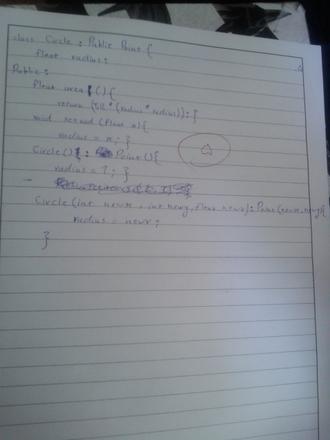 class Circle : Public Point {
float radius;
Public:
float area () {
return (22 * (radius * radius)); }
void setrad (float n) {
radius = n; }
Circle () : Point () {
radius = 1; }
Circle (int newx, int newy, float newr) : Point (newx, newy) {
radius = newr;
}